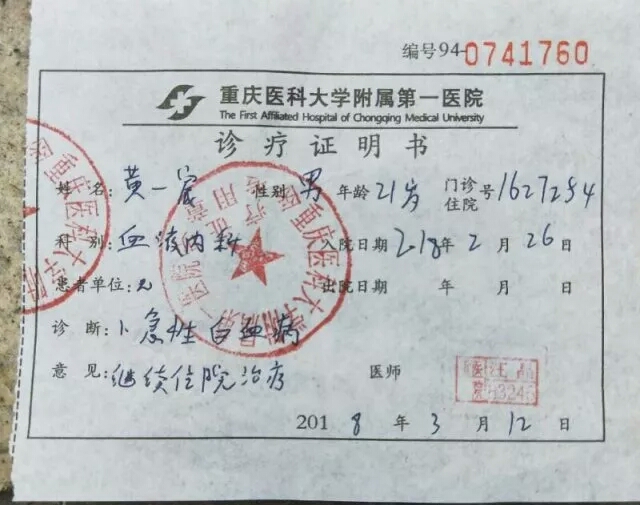 编号94-0741760
重庆医科大学附属第一医院
The First Affiliated Hospital of Chongqing Medical University
诊疗证明书
姓名:黄一宸 性别 男 年龄 21岁 门诊住院号 1627254
科别:血液内科 入院日期 2018年 2 月 26 日
患者单位:无 出院日期 年 月 日
诊断:1、急性白血病
意见:继续住院治疗 医师
2018 年 3 月 12 日